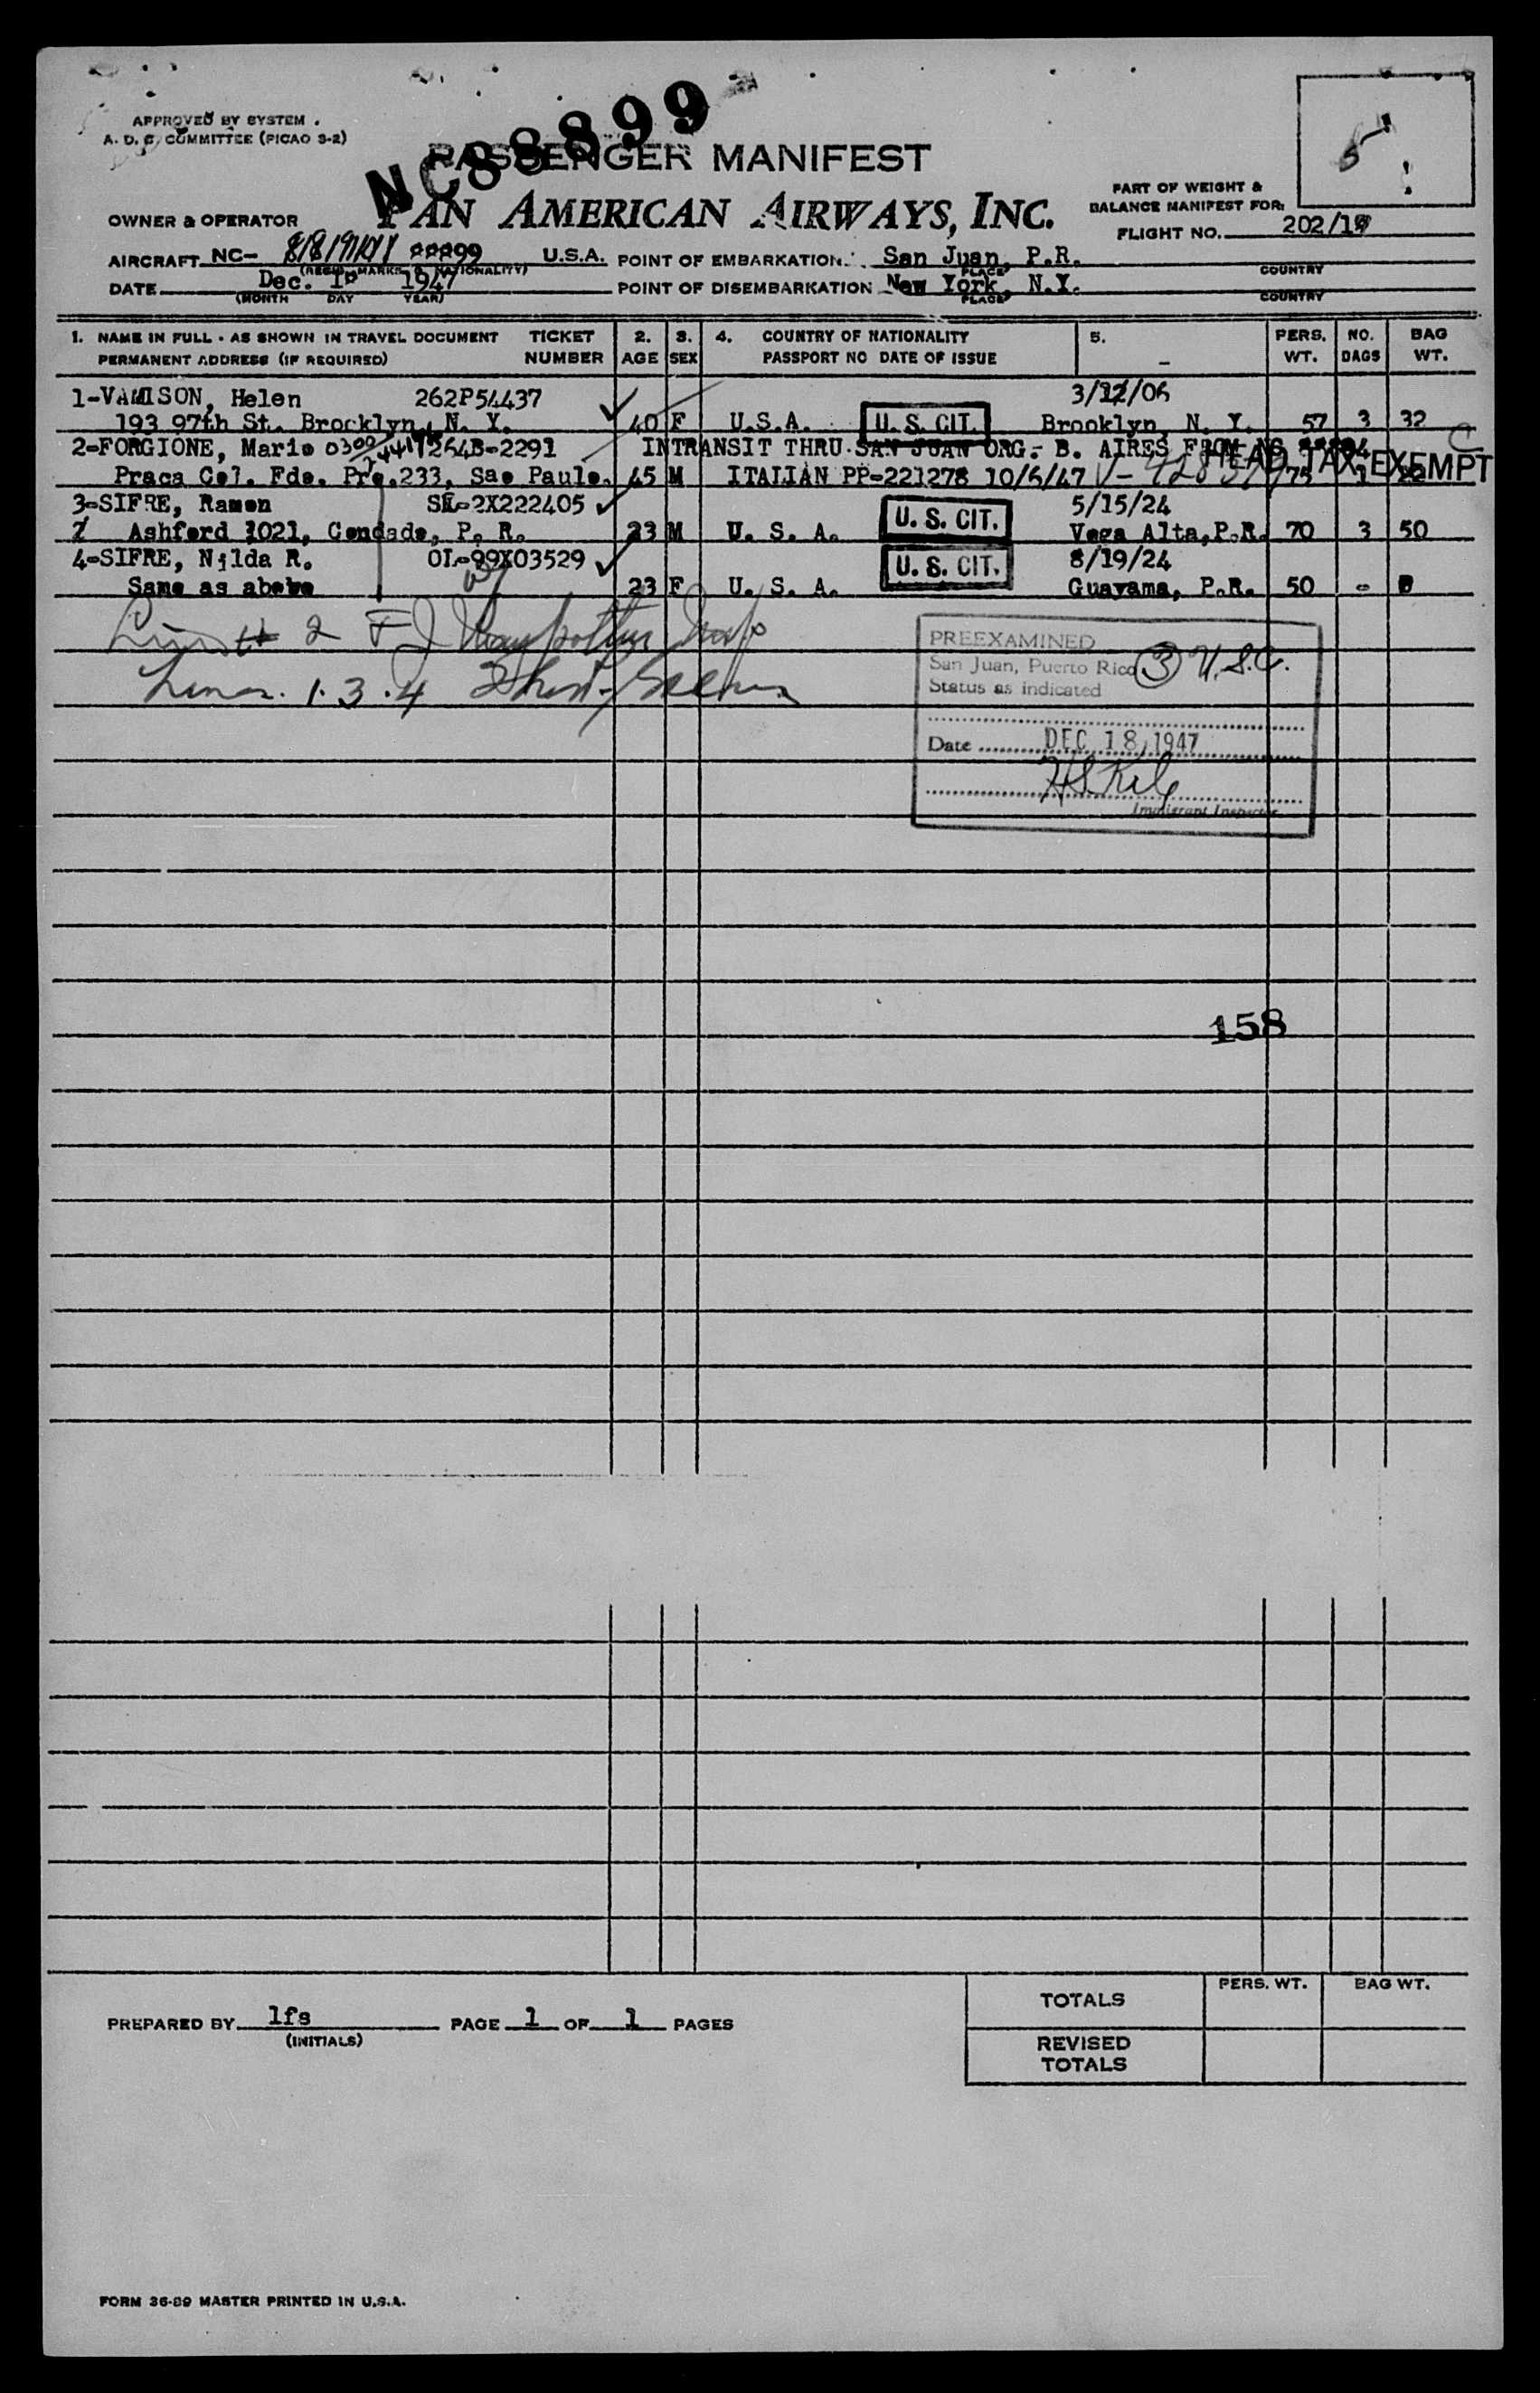 APPROVED BY SYSTEM
A. D. C. COMMITTEE (PICAO S-2)
NC88899
PASSENGER MANIFEST
PAN AMERICAN AIRWAYS, INC.
PART OF WEIGHT &
BALANCE MANIFEST FOR:
OWNER & OPERATOR
FLIGHT NO. 202/1
AIRCRAFT NC- 88899 U.S.A. POINT OF EMBARKATION San Juan, P.R.
(REGIS. MARKS & NATIONALITY) PLACE COUNTRY
DATE Dec. 1947 POINT OF DISEMBARKATION New York, N.Y.
(MONTH DAY YEAR) PLACE COUNTRY
1. NAME IN FULL - AS SHOWN IN TRAVEL DOCUMENT TICKET 2. 3. 4. COUNTRY OF NATIONALITY 5. PERS. NO. BAG
PERMANENT ADDRESS (IF REQUIRED) NUMBER AGE SEX PASSPORT NO DATE OF ISSUE WT. BAGS WT.
1-VAMISON, Helen 262P54437 3/12/06
193 97th St. Brooklyn, N. Y. 40 F U.S.A. U. S. CIT. Brooklyn, N. Y. 57 3 32
2-FORGIONE, Mario 264B-2291 INTRANSIT THRU SAN JUAN ORG.- B. AIRES FROM
HEAD TAX EXEMPT
Praca Col. Fde. Pre.233, Sao Paulo. 45 M ITALIAN PP-221278 10/6/47 75 1
3-SIFRE, Ramon 2X222405 5/15/24
Ashford 1021, Condado, P. R. 23 M U. S. A. U. S. CIT. Vega Alta,P.R. 70 3 50
4-SIFRE, Nilda R. OI-99X03529 8/19/24
Same as above 23 F U. S. A. U. S. CIT. Guayama, P.R. 50 -
2
1.3.4
PREEXAMINED
San Juan, Puerto Rico 3 U.S.C.
Status as indicated
Date DEC 18, 1947
Immigrant Inspector
158
TOTALS PERS. WT. BAG WT.
PREPARED BY lfs PAGE 1 OF 1 PAGES
(INITIALS)
REVISED
TOTALS
FORM 36-89 MASTER PRINTED IN U.S.A.